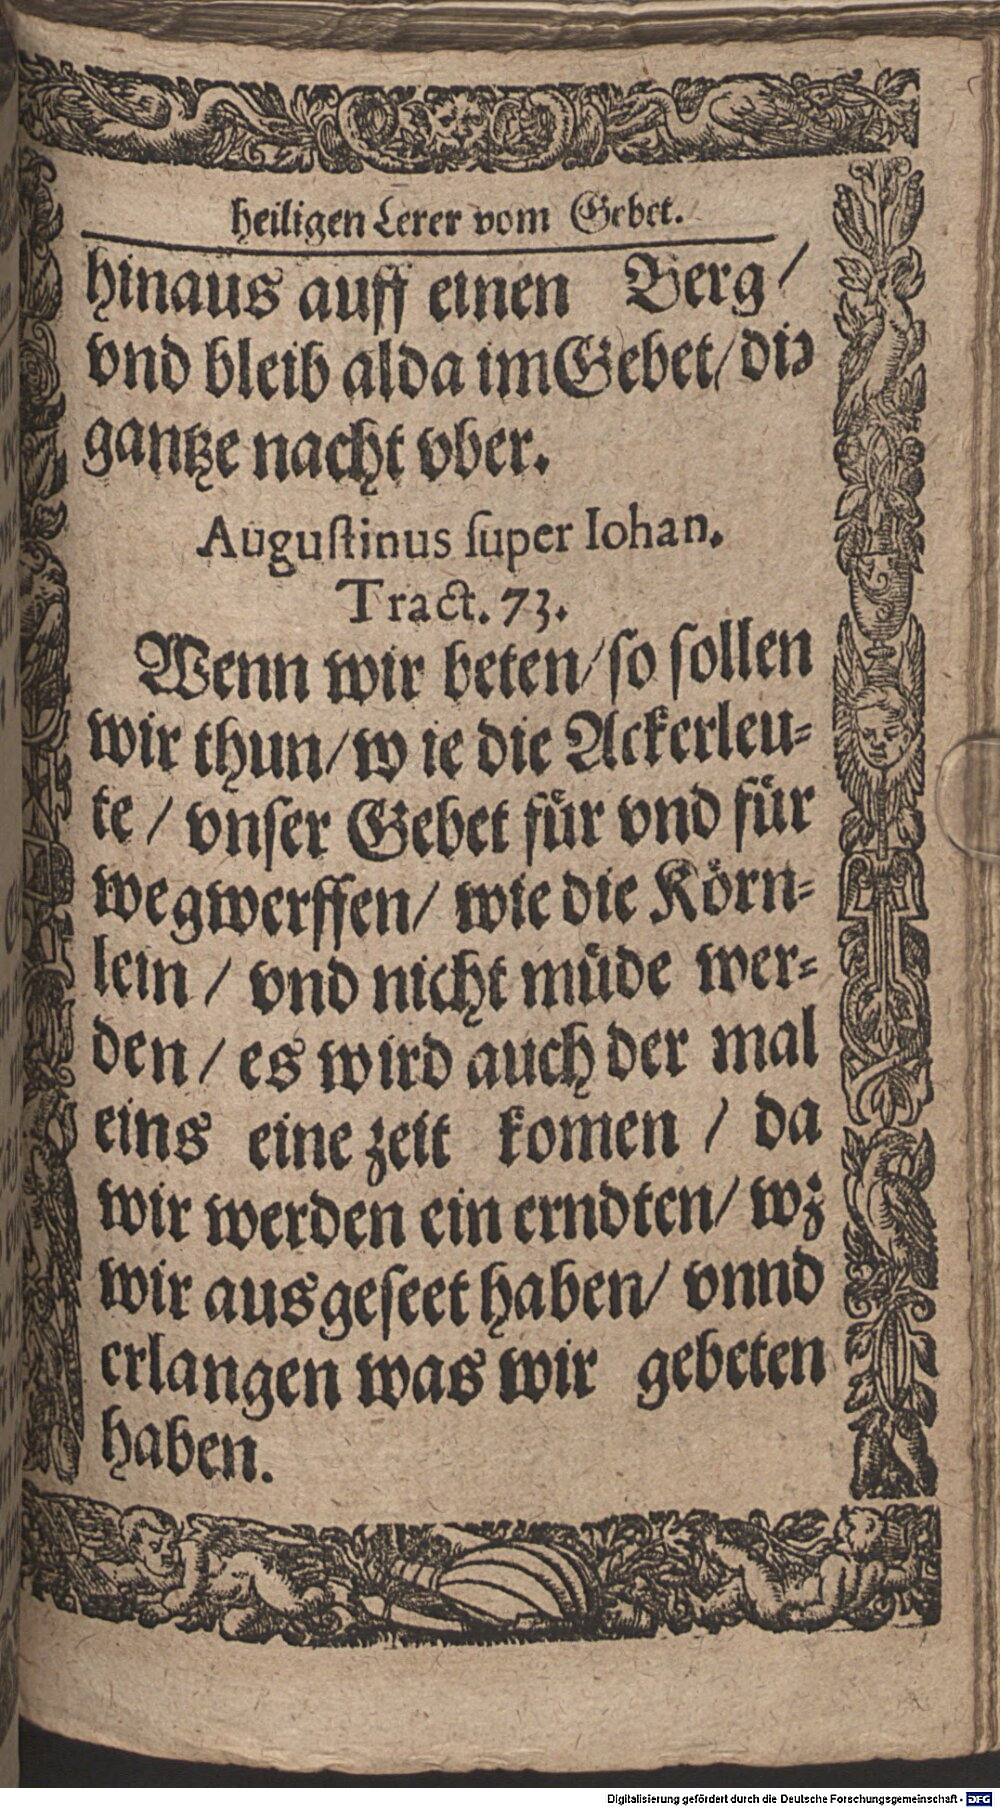 heiligen Lerer vom Gebet.
hinaus auff einen Berg/
vnd bleib alda im Gebet/ die
gantze nacht vber.
Augustinus super Iohan.
Tract. 73.
Wenn wir beten/ so sollen
wir thun/ w ie die Ackerleu-
te / vnser Gebet für vnd für
wegwerffen/ wie die Körn-
lein / vnd nicht müde wer-
den / es wird auch der mal
eins eine zeit komen / da
wir werden ein erndten/ wz
wir ausgeseet haben/ vnnd
erlangen was wir gebeten
haben.
Digitalisierung gefördert durch die Deutsche Forschungsgemeinschaft - DFG